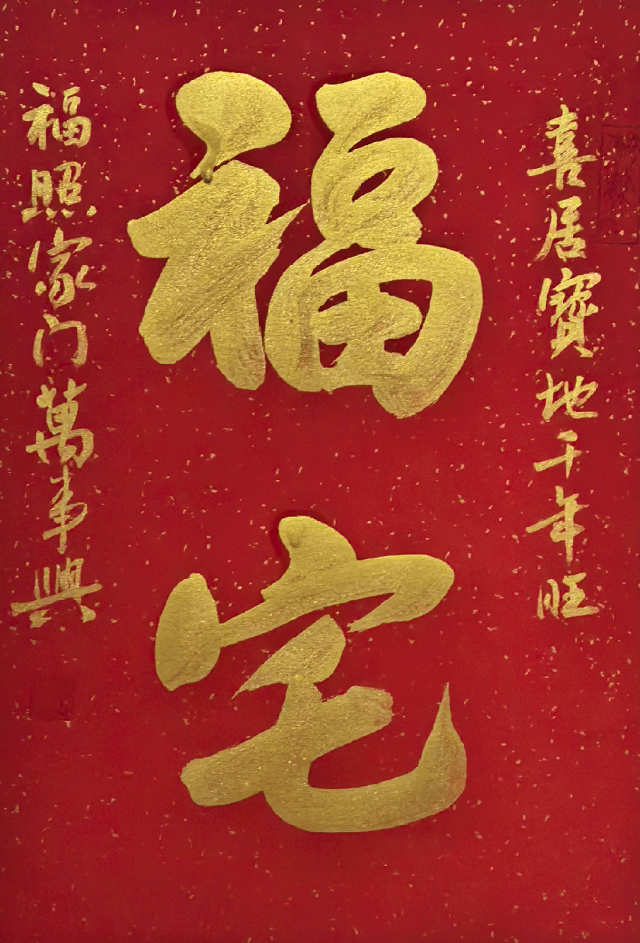 喜居寶地千年旺
福宅
福照家门萬事興